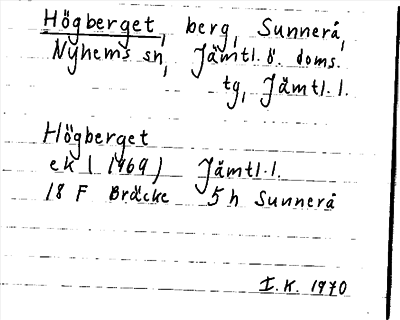 Högberget, berg, Sunnerå,
Nyhems sn, Jämtl. ö. doms.
tg, Jämtl. l.
Högberget
ek (1969) Jämtl. l.
18 F Bräcke 5 h Sunnerå
I. K. 1970